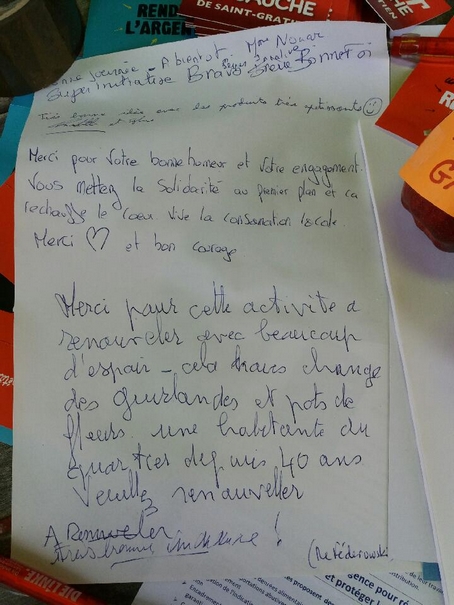 REND
L'ARGEN
GAUCHE
DE SAINT-GRATI
nne journée - A bientôt. Mme Nouar
Super initiative Bravo
Très bonne idée avec les produits très
Merci pour votre bonne humeur et votre engagement.
Vous mettez la solidarité au premier plan et ca
rechauffe le coeur. Vive la consommation locale
Merci ♡ et bon courage
Merci pour cette activite a
renouveler avec beaucoup
d'espoir - cela nous change
des guirlandes et pots de
fleurs une habitante du
quartier depuis 40 ans
Veuillez renouveller
A Renouveler
très bonne !
DIE LINKE
et protéger !